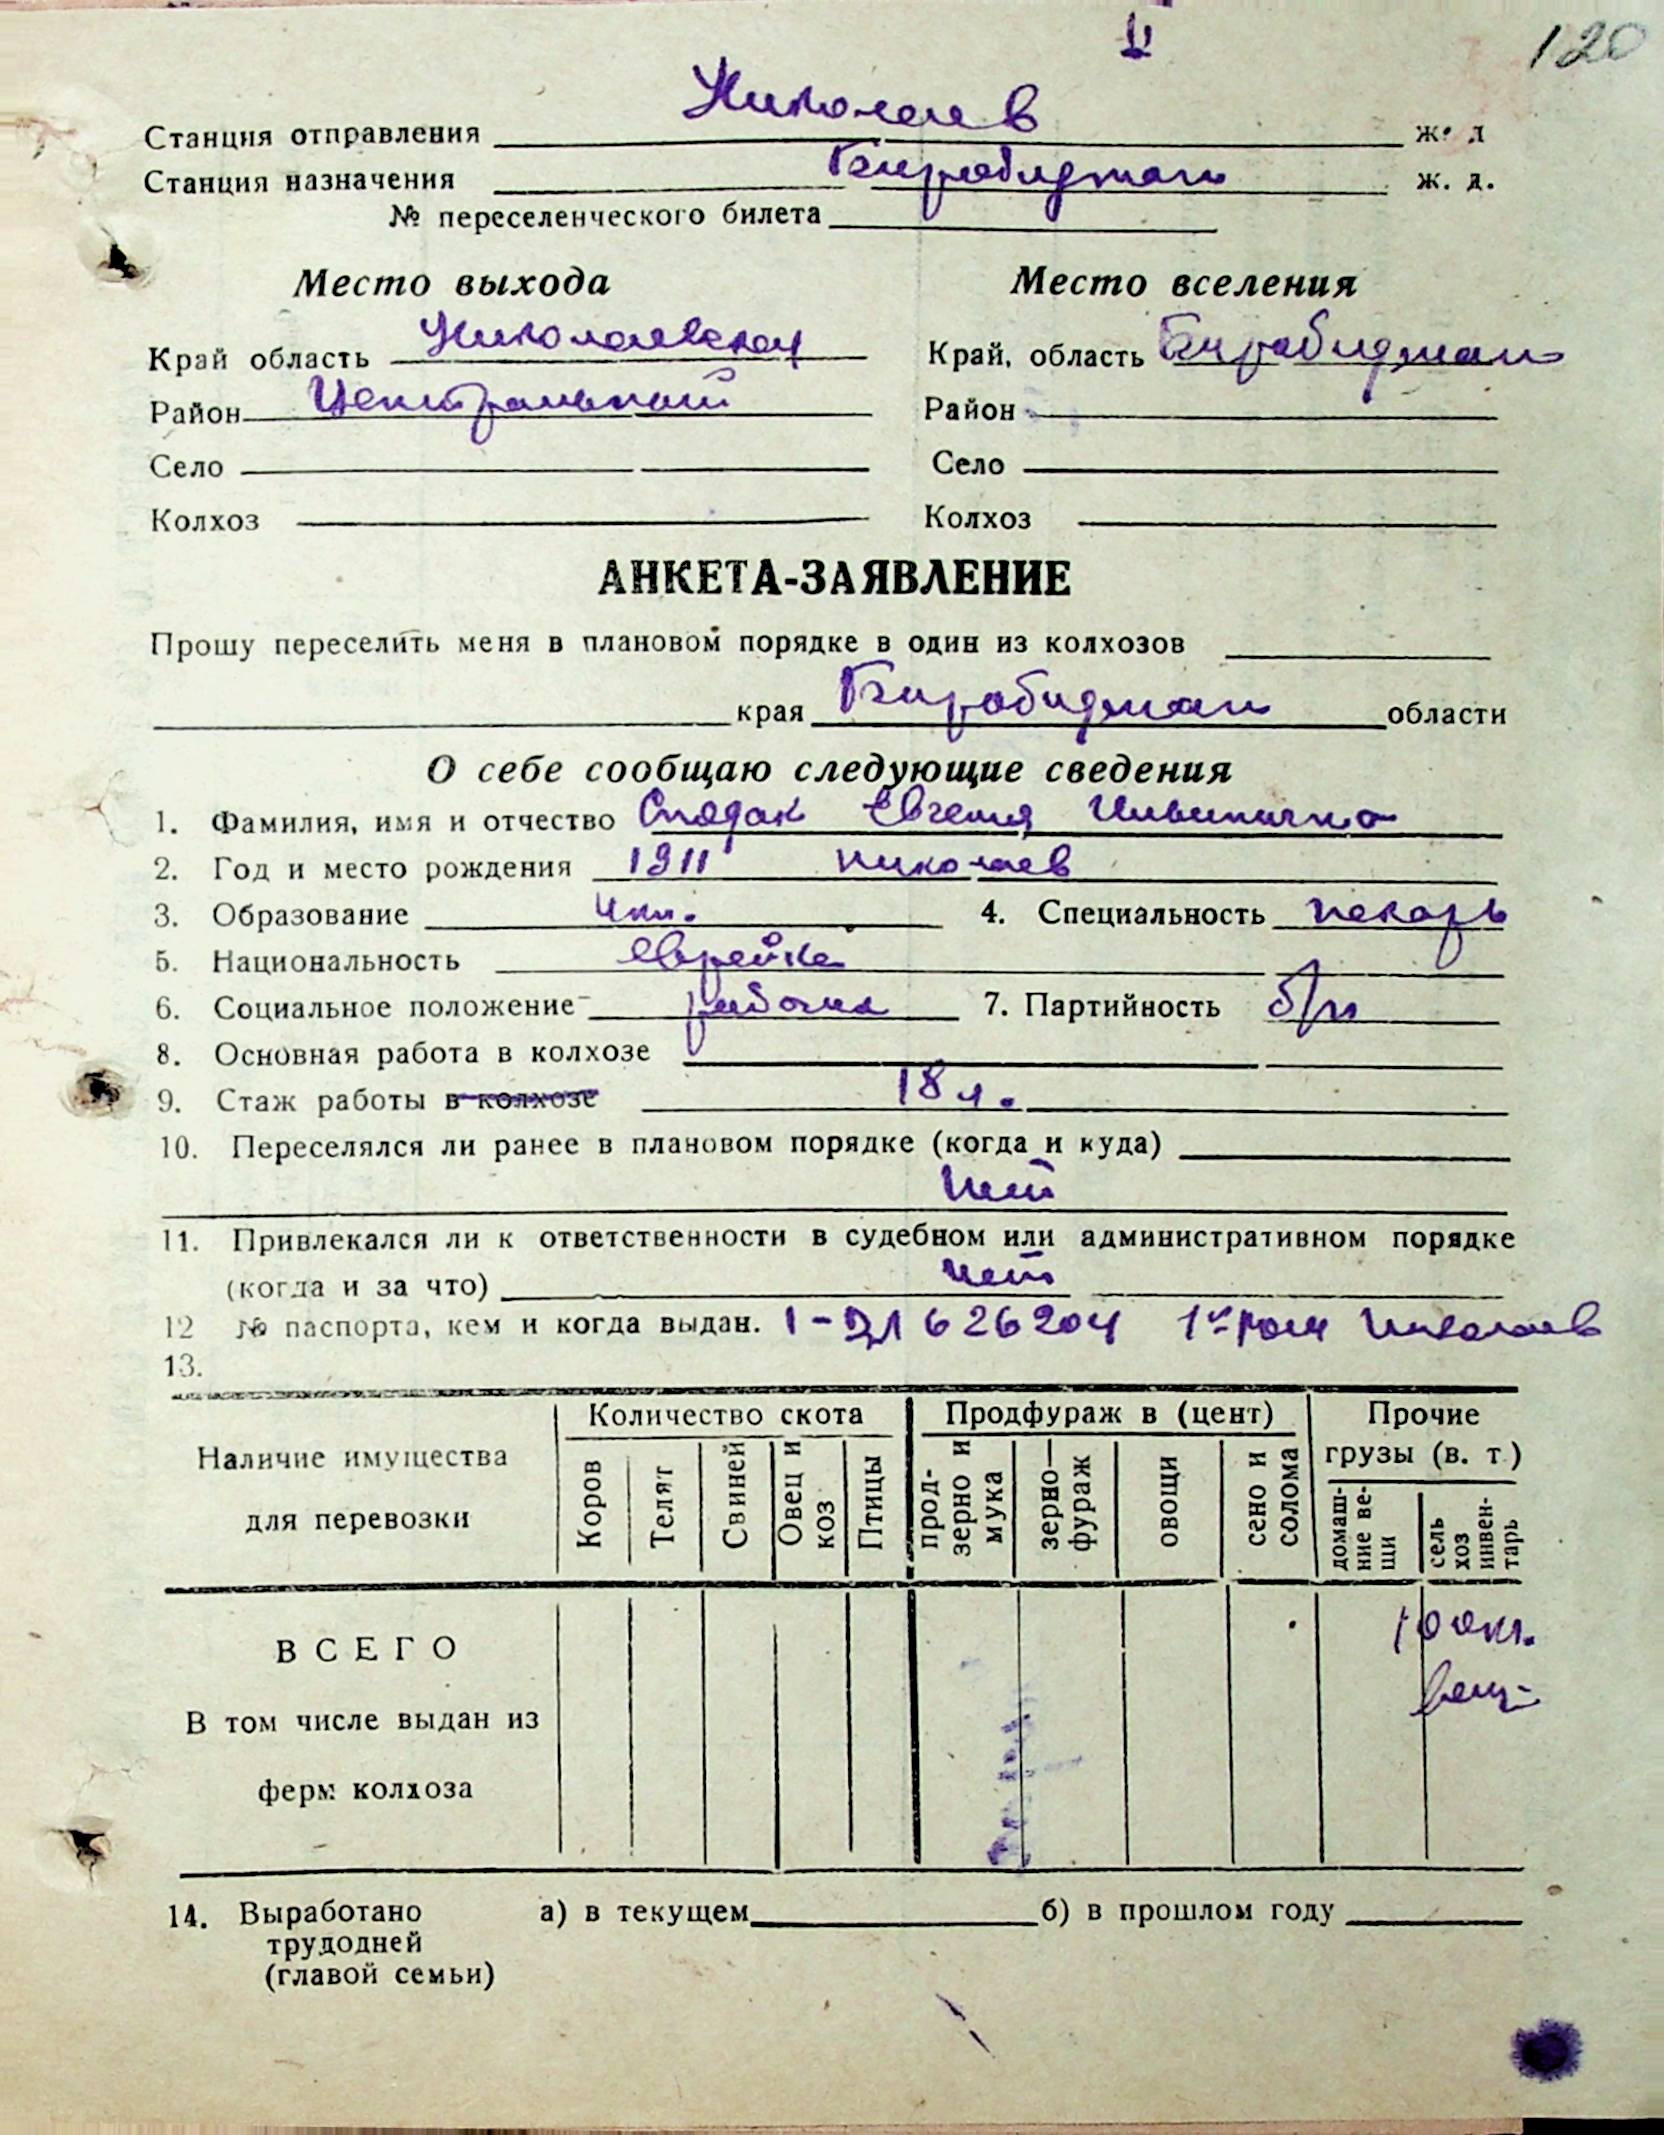 120
Николаев
Станция отправления ж. д
Станция назначения Биробиджан ж. д.
№ переселенческого билета
Место выхода Место вселения
Край область Николаевская Край, область Биробиджан
Район Центральный Район
Село Село
Колхоз Колхоз
АНКЕТА-ЗАЯВЛЕНИЕ
Прошу переселить меня в плановом порядке в один из колхозов
края Биробиджан области
О себе сообщаю следующие сведения
1. Фамилия, имя и отчество Сподак Евгения
2. Год и место рождения 1911 Николаев
3. Образование 4 кл. 4. Специальность пекарь
5. Национальность еврейка
6. Социальное положение рабочая 7. Партийность б/п
8. Основная работа в колхозе
9. Стаж работы в колхозе 18 л.
10. Переселялся ли ранее в плановом порядке (когда и куда)
Нет
11. Привлекался ли к ответственности в судебном или административном порядке
(когда и за что) нет
12 № паспорта, кем и когда выдан. 626204 Николаев
13.
Наличие имущества для перевозки
Количество скота Продфураж в (цент) Прочие грузы (в. т.)
Коров Телят Свиней Овец и коз Птицы прод-зерно и мука зерно-фураж овощи сено и солома домаш-ние ве-щи сель хоз инвен-тарь
ВСЕГО 100 кг.
вещ-
В том числе выдан из
ферм колхоза
14. Выработано а) в текущем б) в прошлом году
трудодней
(главой семьи)